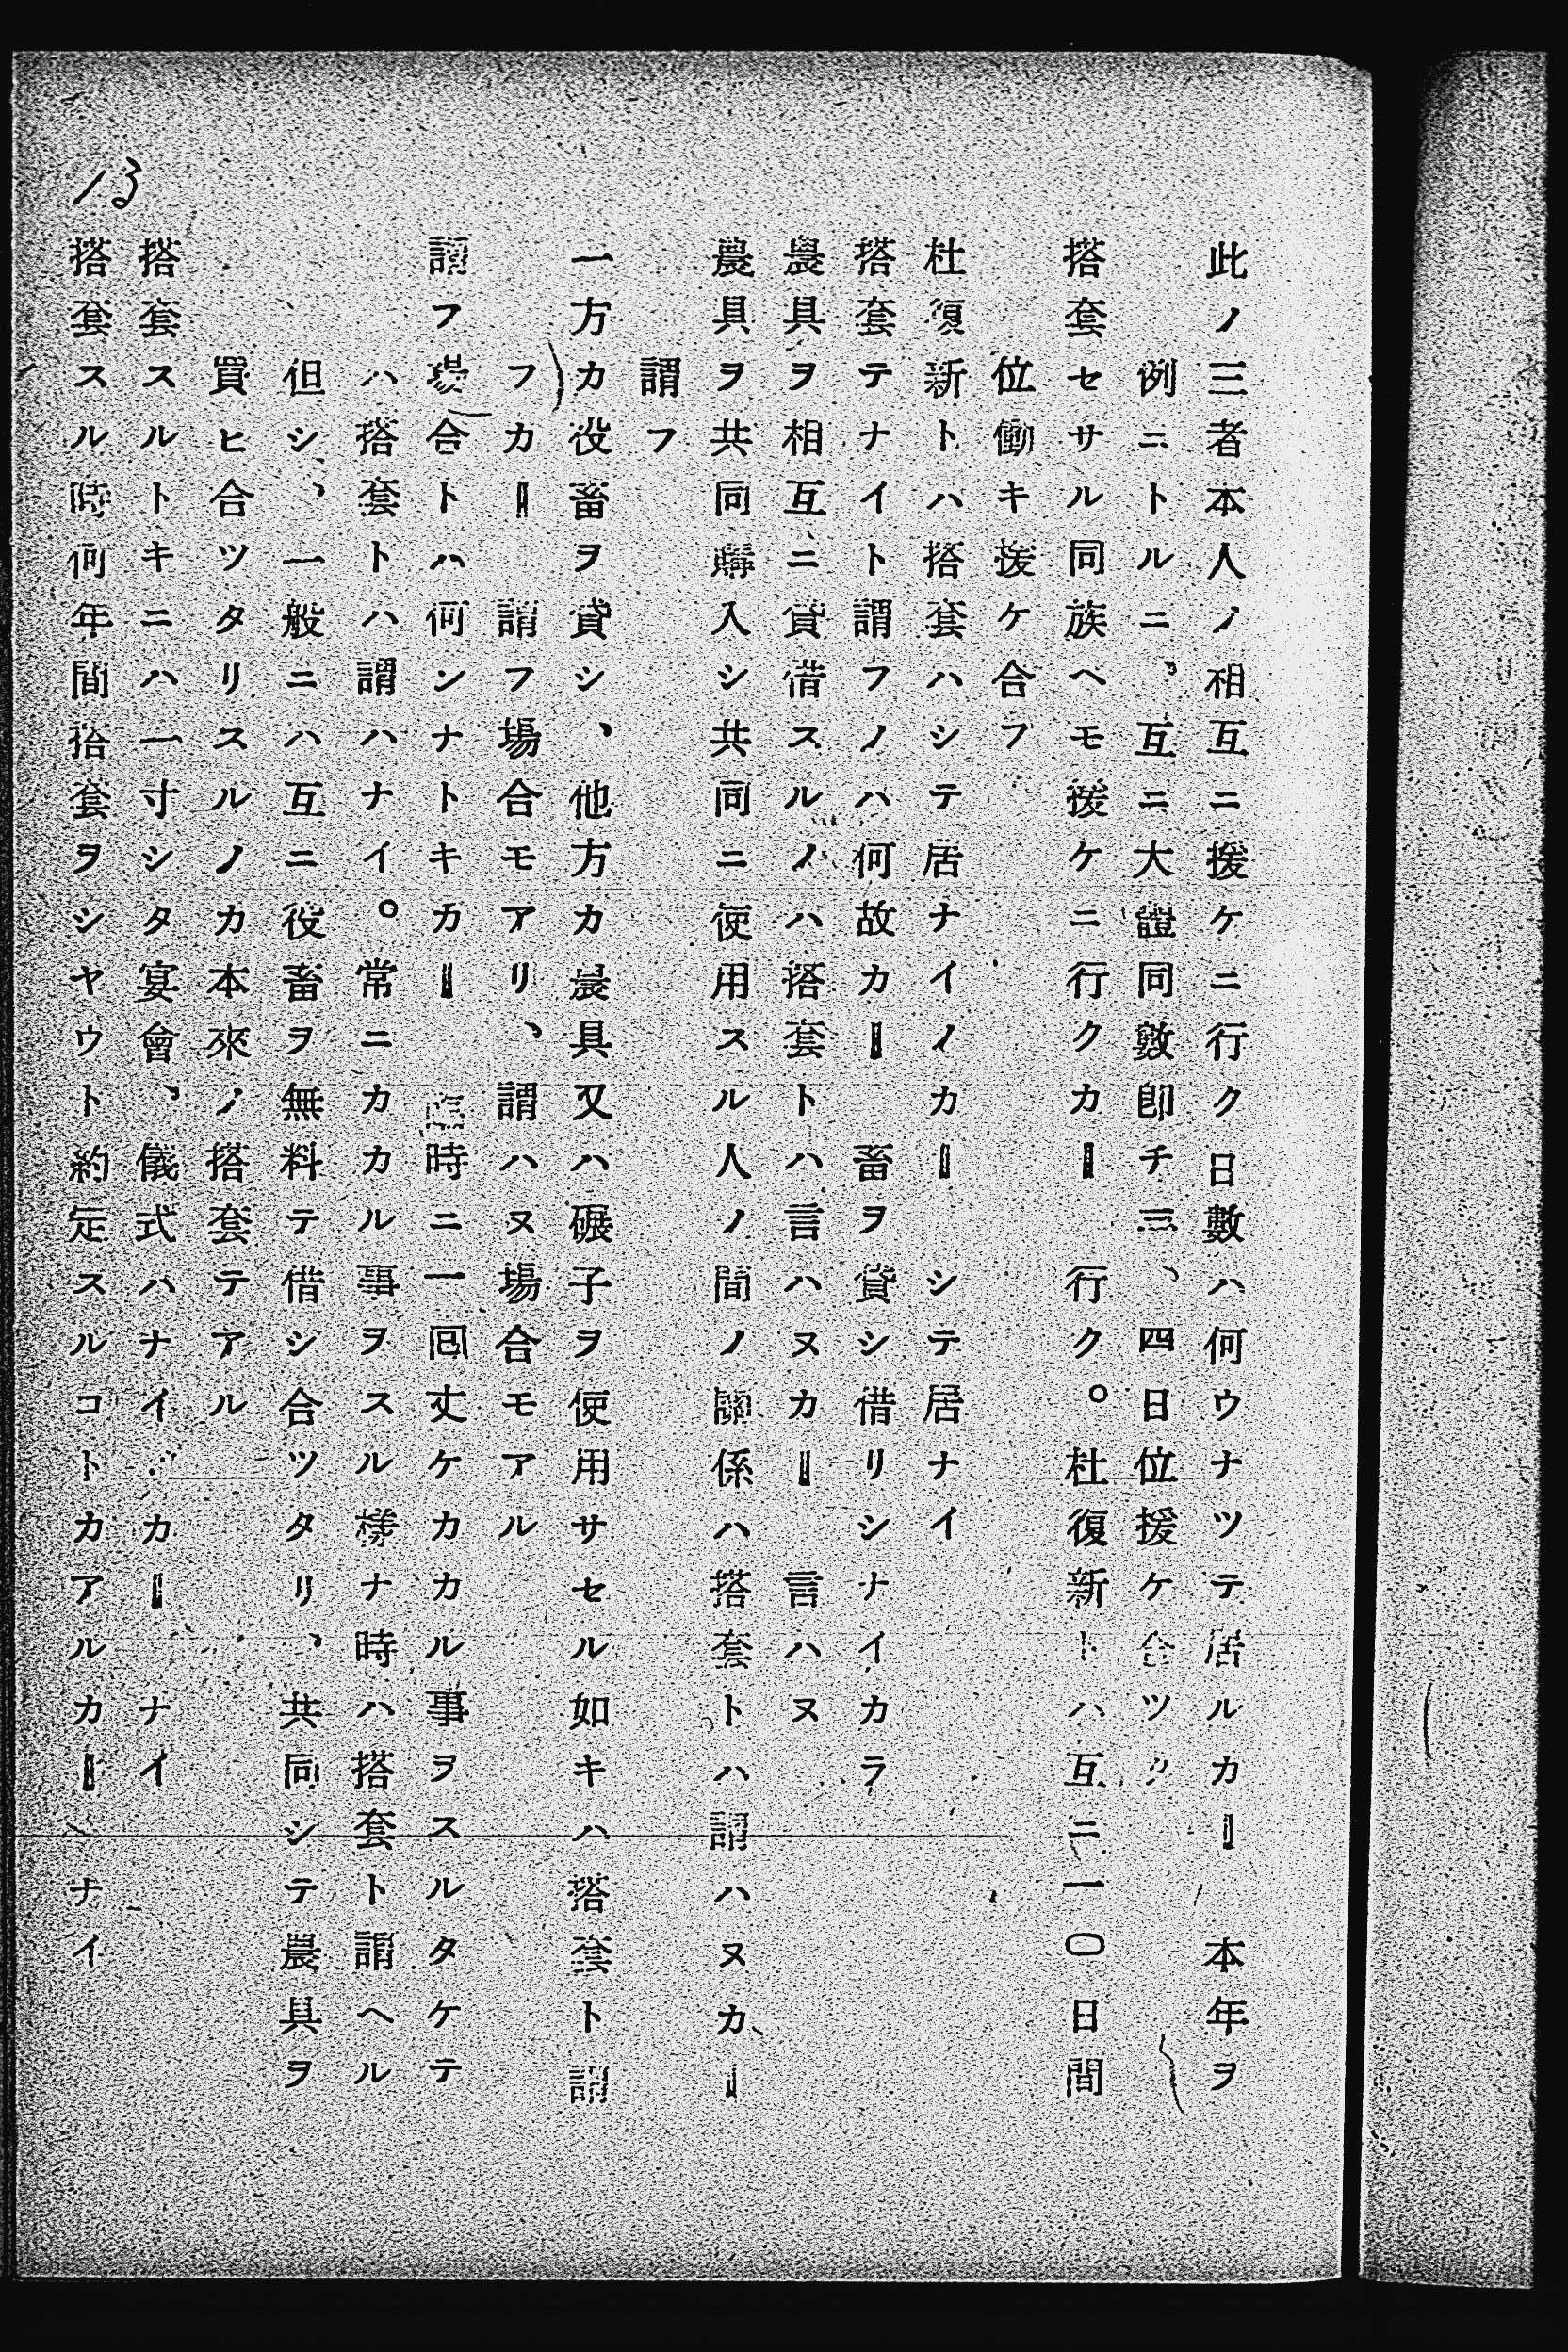 此ノ三者本人ノ相互ニ援ケニ行ク日數ハ何ウナツテ居ルカー 本年ヲ
例ニトルニ、互ニ大證同數卽チ三、四日位援ケ合ツタ
搭套セサル同族ヘモ援ケニ行クカー 行ク。杜復新トハ互ニ一〇日間
位働キ援ケ合フ
杜復新トハ搭套ハシテ居ナイノカー シテ居ナイ
搭套テナイト謂フノハ何故カー 畜ヲ貸シ借リシナイカラ
農具ヲ相互ニ貸借スルノハ搭套トハ言ハヌカー 言ハヌ
農具ヲ共同購入シ共同ニ使用スル人ノ間ノ關係ハ搭套トハ謂ハヌカー
謂フ
一方カ役畜ヲ貸シ、他方カ農具又ハ碾子ヲ使用サセル如キハ搭套ト謂
フカー 謂フ場合モアリ、謂ハヌ場合モアル
謂フ場合トハ何ンナトキカー 時ニ一囘丈ケカカル事ヲスルタケテ
ハ搭套トハ謂ハナイ。常ニカカル事ヲスル樣ナ時ハ搭套ト謂ヘル
但シ、一般ニハ互ニ役畜ヲ無料テ借シ合ツタリ、共同シテ農具ヲ
買ヒ合ツタリスルノカ本來ノ搭套テアル
搭套スルトキニハ一寸シタ宴會、儀式ハナイカー ナイ
搭套スル時何年間搭套ヲシヤウト約定スルコトカアルカー ナイ
13